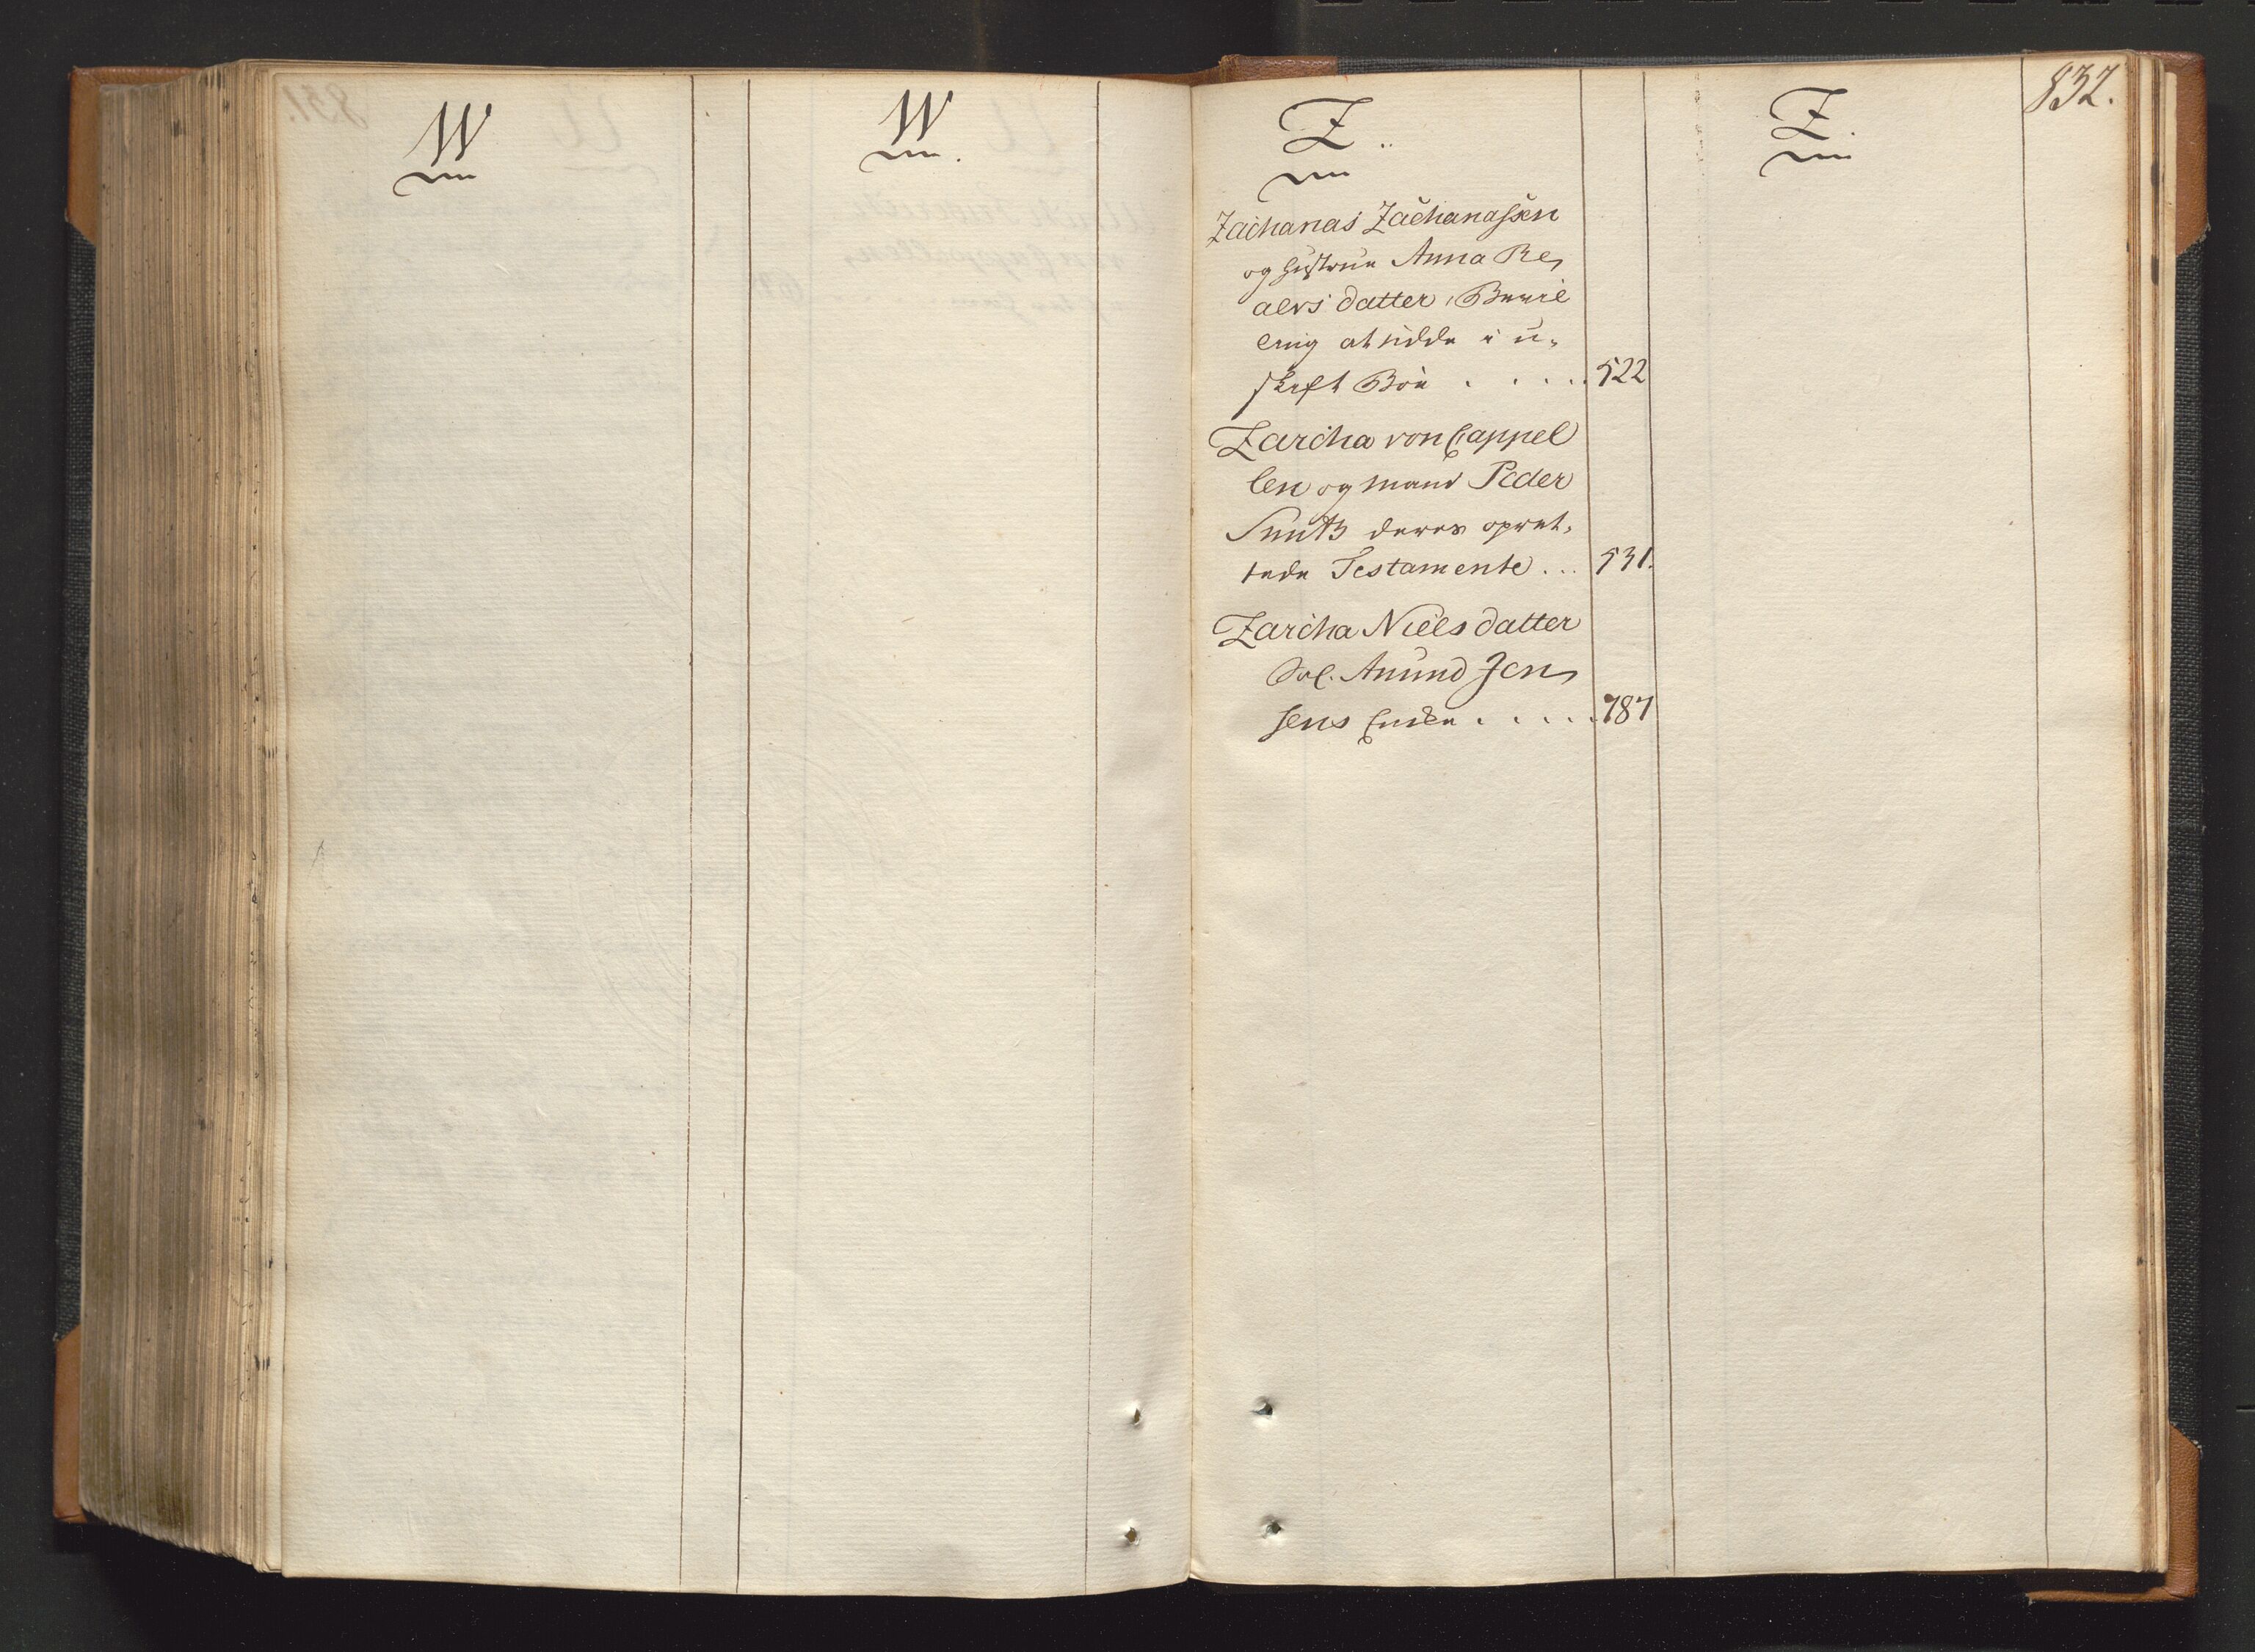 W
W.
Z..
Z.
832.
Zacharias Zachariassen
og Hustrue Anna Re,
aers datter, Beville
ring at sidde i u-
skift Boe . . . . 522
Zarcha von Cappel
len og Mand Peder
Smith deres opret,
tede Testamente... 531.
Zarcha Niels datter
Sal. Amund Jen,
sens Encke . . . . . 787